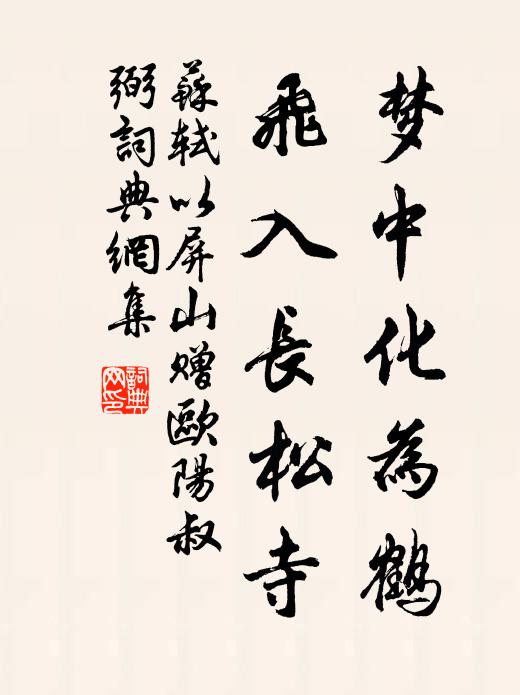 梦中化為鶴
飛入長松寺
蘇軾以屏山贈歐陽叔
弼詞典網集
詞典网印